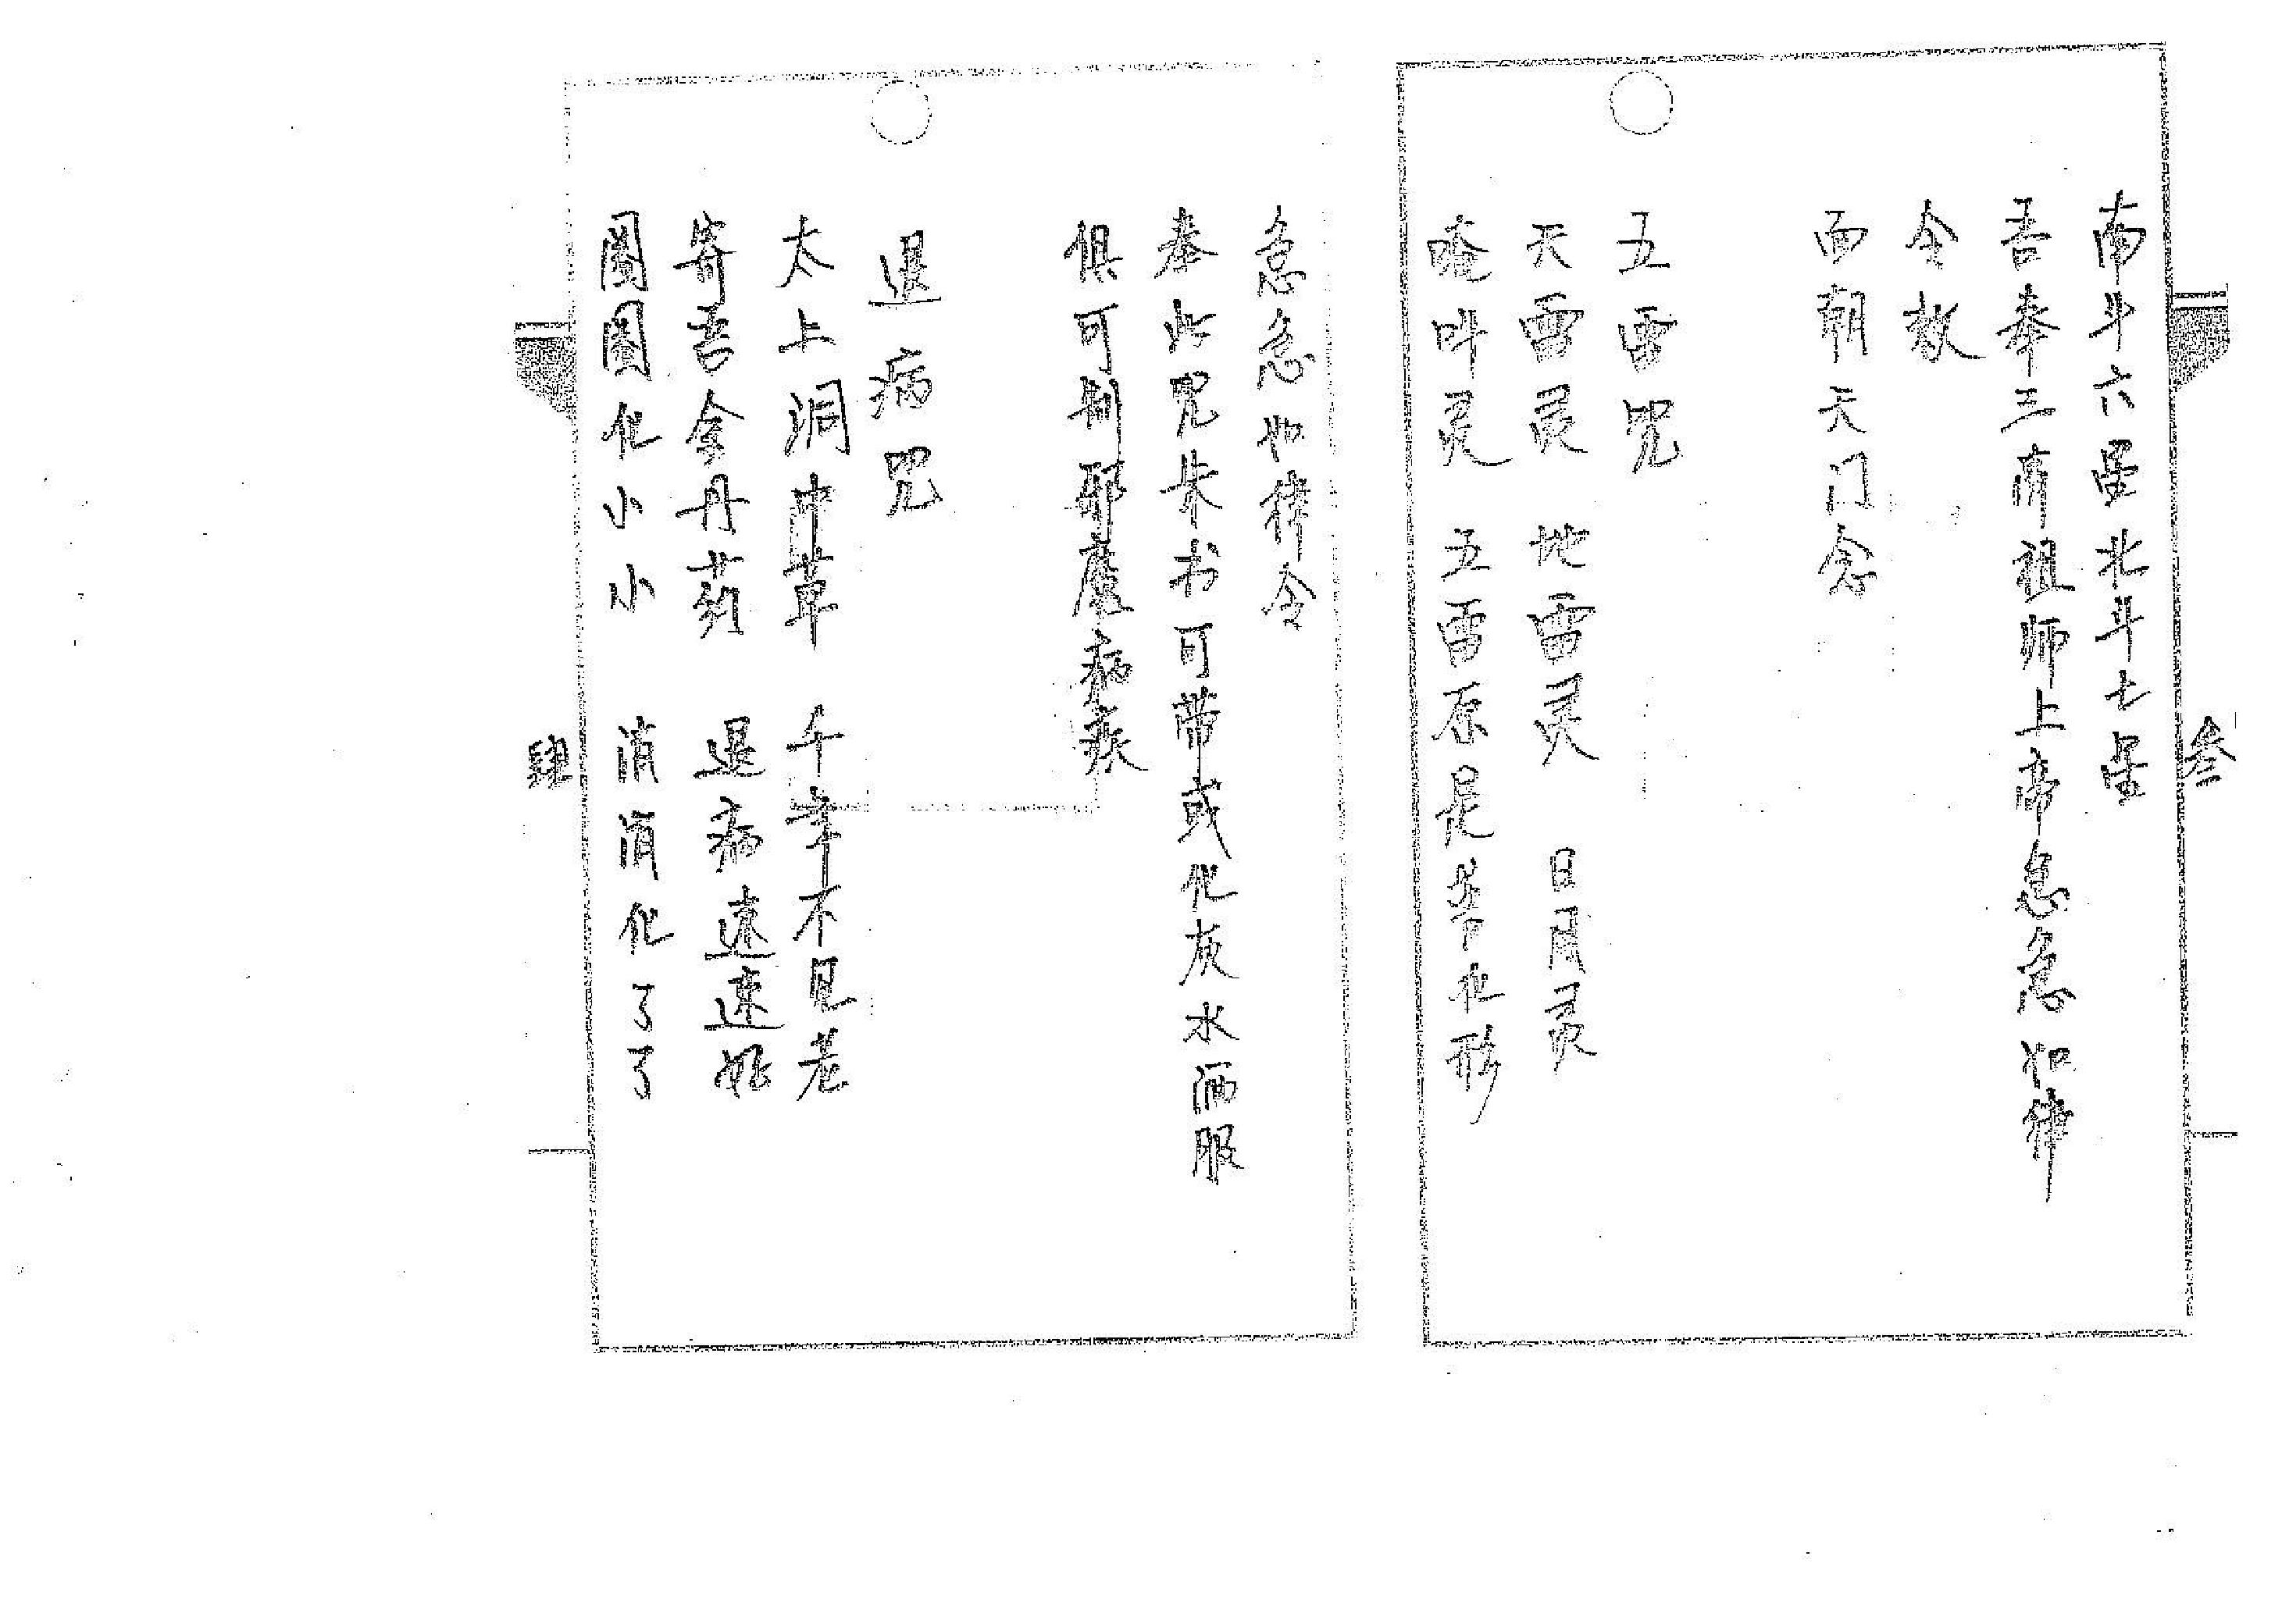 叁
南斗六星北斗七星
吾奉三清祖师上帝急急如律
令敕
面朝天门念
五雷咒
天雷灵 地雷灵 日月灵
唵吽灵 五雷原是苓化形
急急如律令
奉此咒朱书可带或化灰水洒服
俱可制邪魔病疾
退病咒
太上洞中草 千年不见老
寄吾金丹药 退病速速好
圈圈化小小 消消化了了
肆